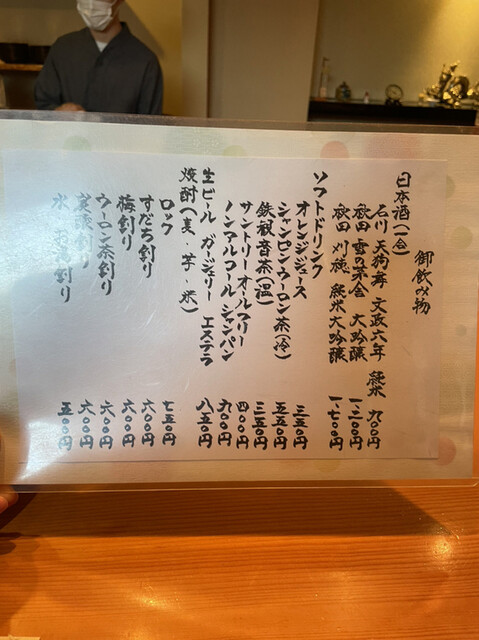 御飲み物
日本酒(一合)
石川 天狗舞 文政六年 純米 九〇〇円
秋田 雪の茅舎 大吟醸 一、三〇〇円
秋田 刈穂 純米大吟醸 一、七〇〇円
ソフトドリンク
オレンジジュース 三五〇円
ジャンピン・ウーロン茶(冷) 五五〇円
鉄観音茶(温) 三五〇円
サントリーオールフリー 四〇〇円
ノンアルコール・シャンパン 九〇〇円
生ビール ガージェリー エステラ 八五〇円
焼酎(麦・芋・米)
ロック 七五〇円
すだち割り 六〇〇円
梅割り 六〇〇円
ウーロン茶割り 六〇〇円
割り 六〇〇円
水・お湯割り 五〇〇円